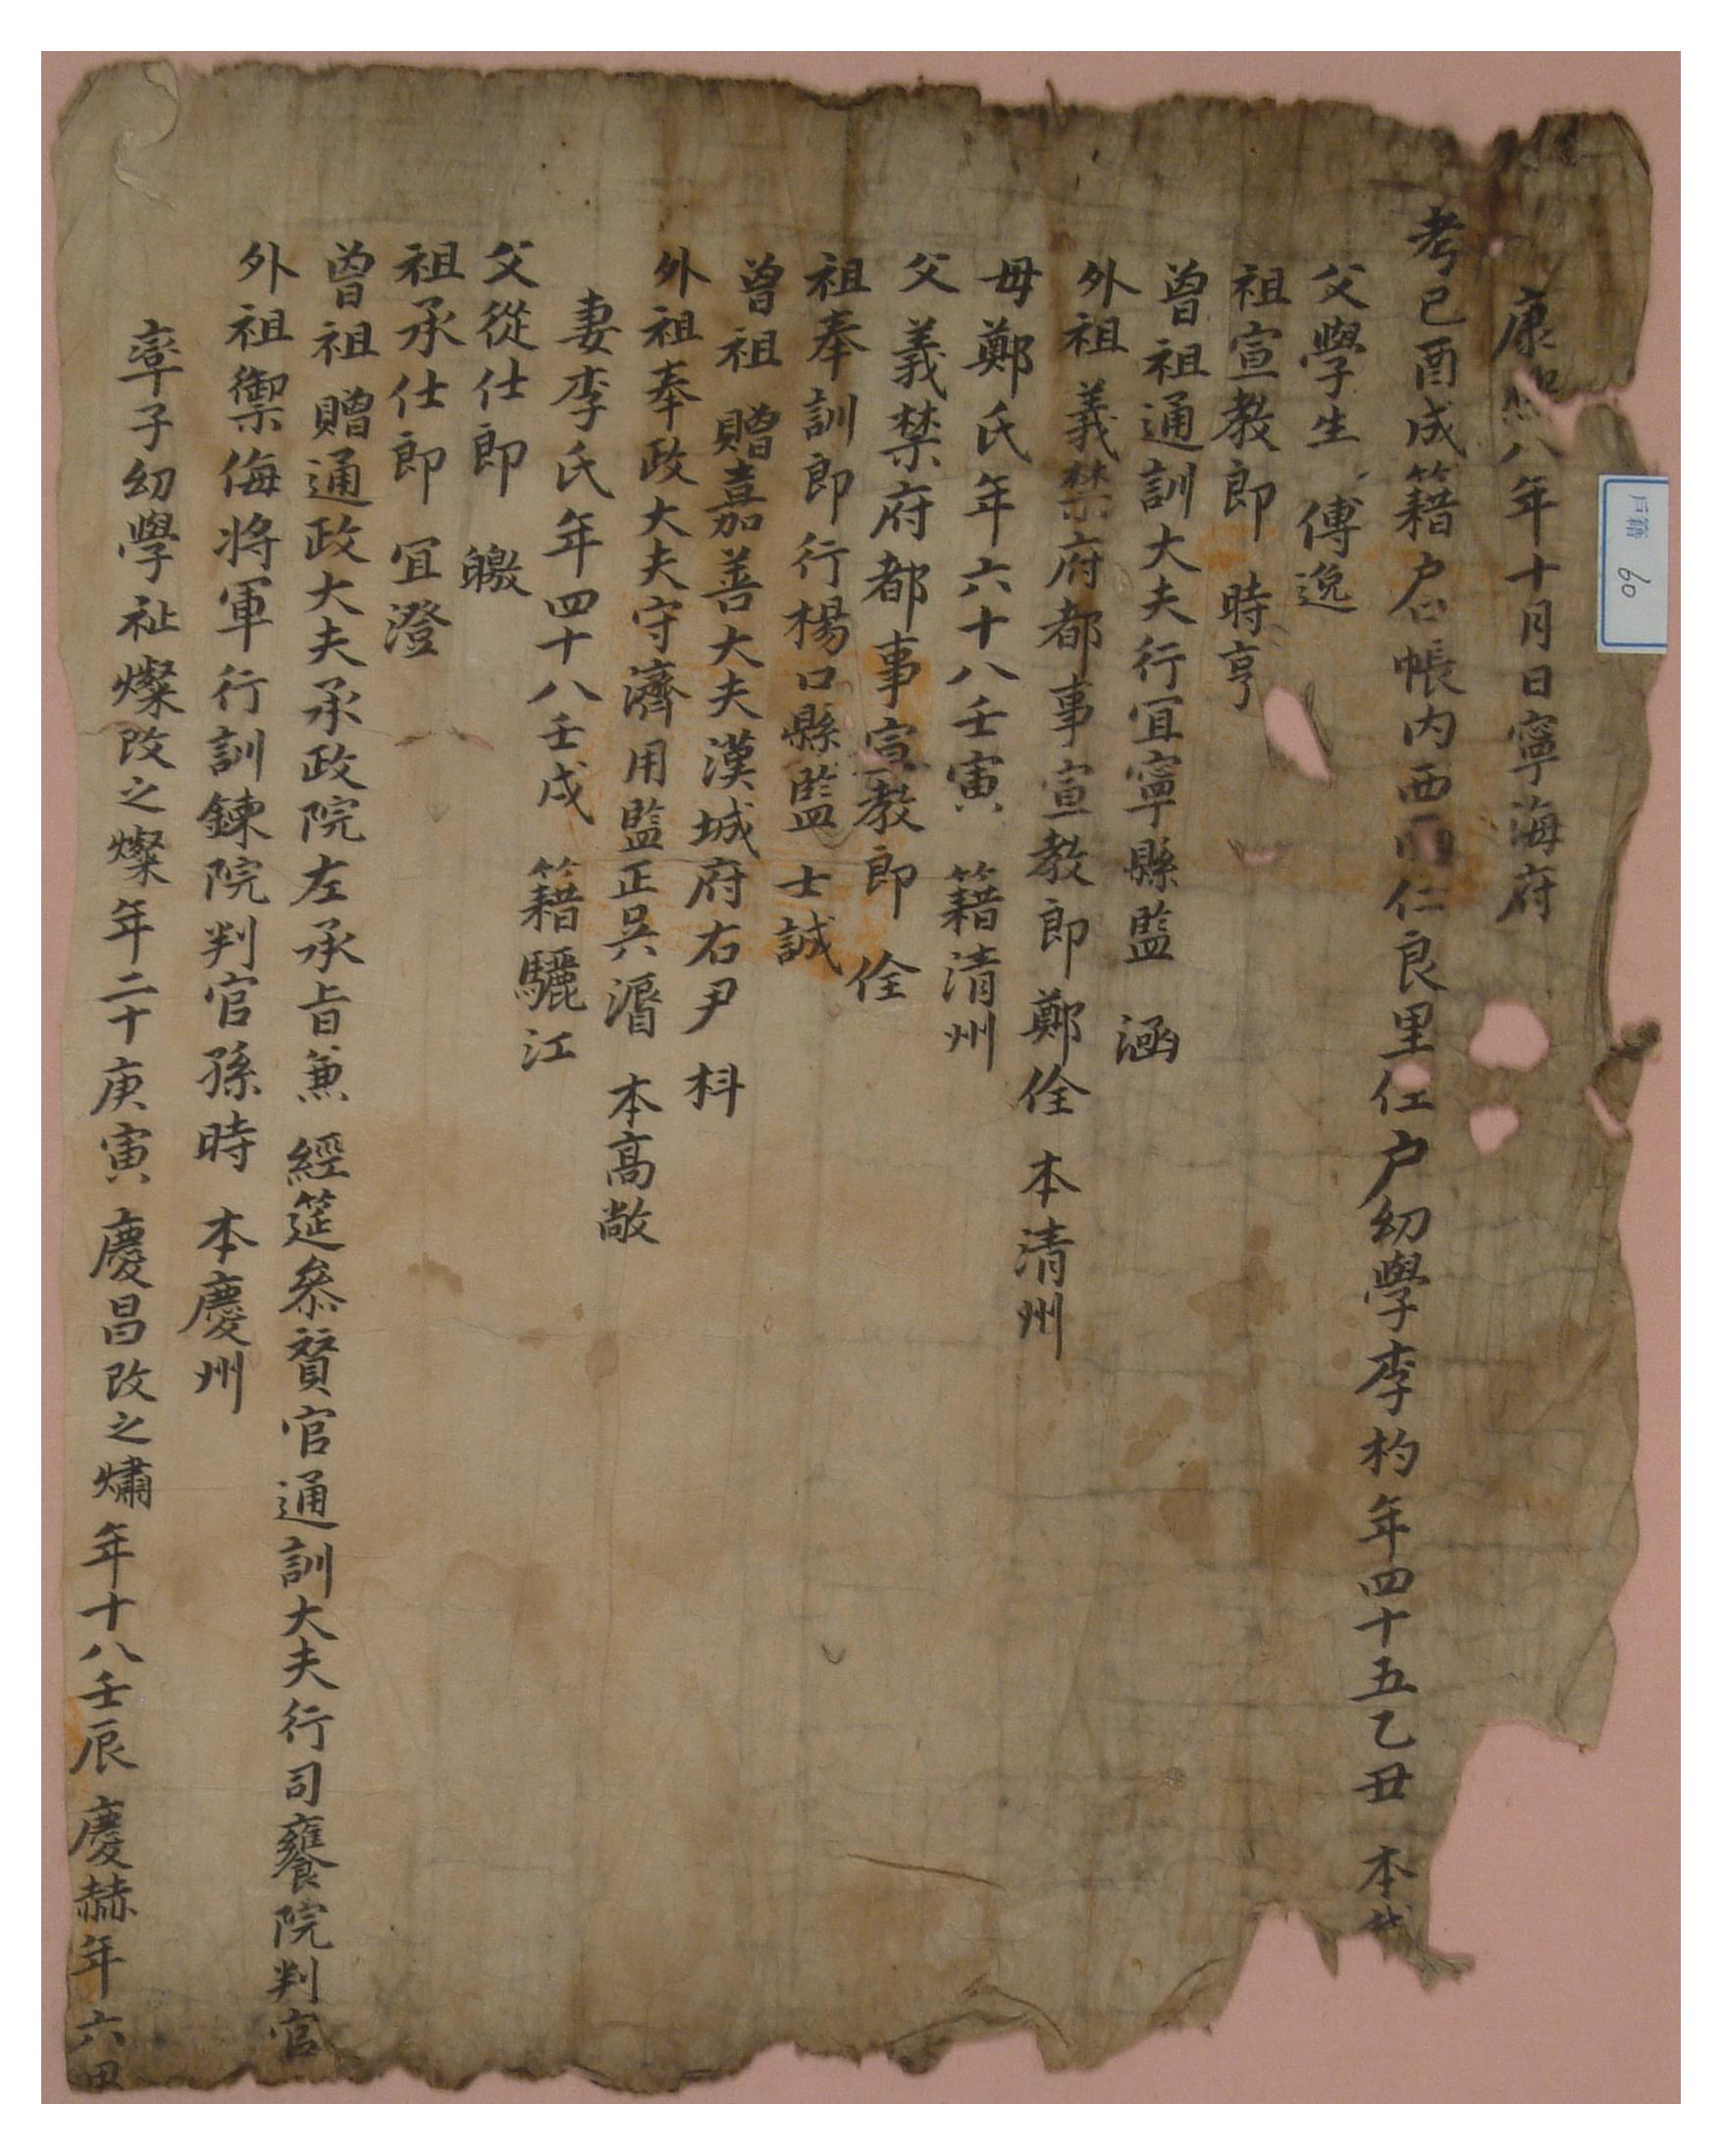 康熙八年十月日寧海府
考己酉成籍户口帳内西面仁良里仁户幼學李杓年四十五乙丑 本載
父學生 傅逸
祖宣教郎 時亨
曾祖通訓大夫行宜寧縣監 涵
外祖義禁府都事宣教郎鄭佺 本清州
母鄭氏年六十八壬寅 籍清州
父義禁府都事宣教郎 佺
祖奉訓郎行楊口縣監 士誠
曾祖 贈嘉善大夫漢城府右尹 枓
外祖奉政大夫守濟用監正吳湣 本高敞
妻李氏年四十八壬戌 籍驪江
父從仕郎 皦
祖承仕郎 宜澄
曾祖 贈通政大夫承政院左承旨兼 經筵叅贊官通訓大夫行司饔院判官
外祖禦侮将軍行訓鍊院判官孫時 本慶州
率子幼學祉燦改之燦年二十庚寅 慶昌改之熽年十八壬辰 慶赫年六甲
户籍 60